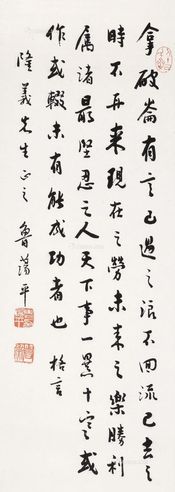 拿破崙有言已過之浪不回流已去之
時不再来現在之勞未来之樂勝利
属諸最堅忍之人天下事一暴十寒或
作或輟未有能成功者也 格言
隆義先生正之 魯蕩平